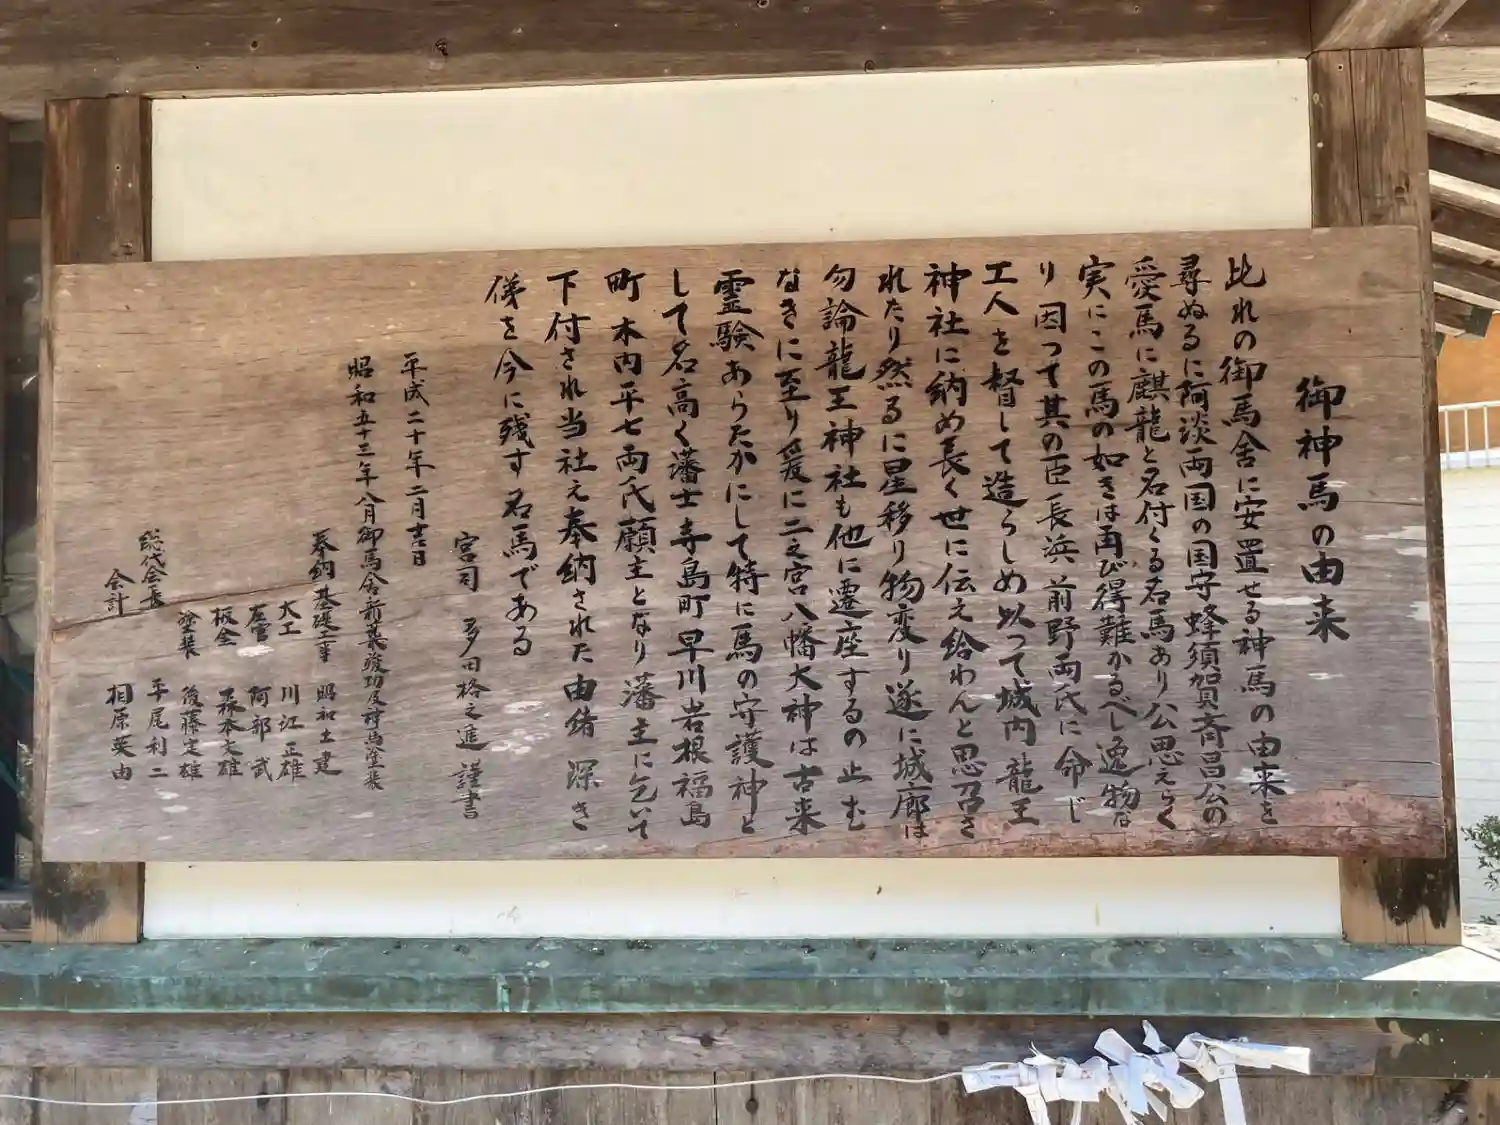 御神馬の由来
此れの御馬舎に安置せる神馬の由来を
尋ぬるに阿淡両国の国守蜂須賀斉昌公の
愛馬に麒龍と名付くる名馬あり公思えらく
実にこの馬の如きは再び得難かるべし逸物な
り因つて其の臣長浜前野両氏に命じ
工人を督して造らしめ以つて城内龍王
神社に納め長く世に伝え給わんと思召さ
れたり然るに星移り物変り遂に城廊は
勿論龍王神社も他に遷座するの止む
なきに至り爰に二之宮八幡大神は古来
霊験あらたかにして特に馬の守護神と
して名高く藩士寺島町早川岩根福島
町木内平七両氏願主となり藩主に乞いて
下付され当社え奉納された由緒深き
儀を今に残す名馬である
宮司 多田格之進 謹書
平成二十年二月吉日
昭和五十三年八月御馬舎新築竣功及神馬塗装
奉納 基礎工事 昭和土建
大工 川江正雄
左官 阿部武
板金 森本文雄
塗装 後藤定雄
総代会長 平尾利二
会計 相原英由